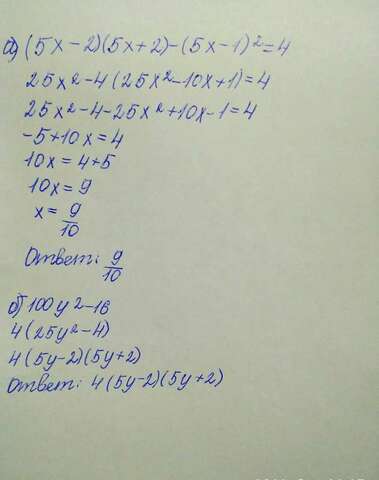 а) (5x-2)(5x+2)-(5x-1)²=4
25x²-4(25x²-10x+1)=4
25x²-4-25x²+10x-1=4
-5+10x=4
10x=4+5
10x=9
x=9/10
Ответ: 9/10
б) 100y²-16
4(25y²-4)
4(5y-2)(5y+2)
Ответ: 4(5y-2)(5y+2)